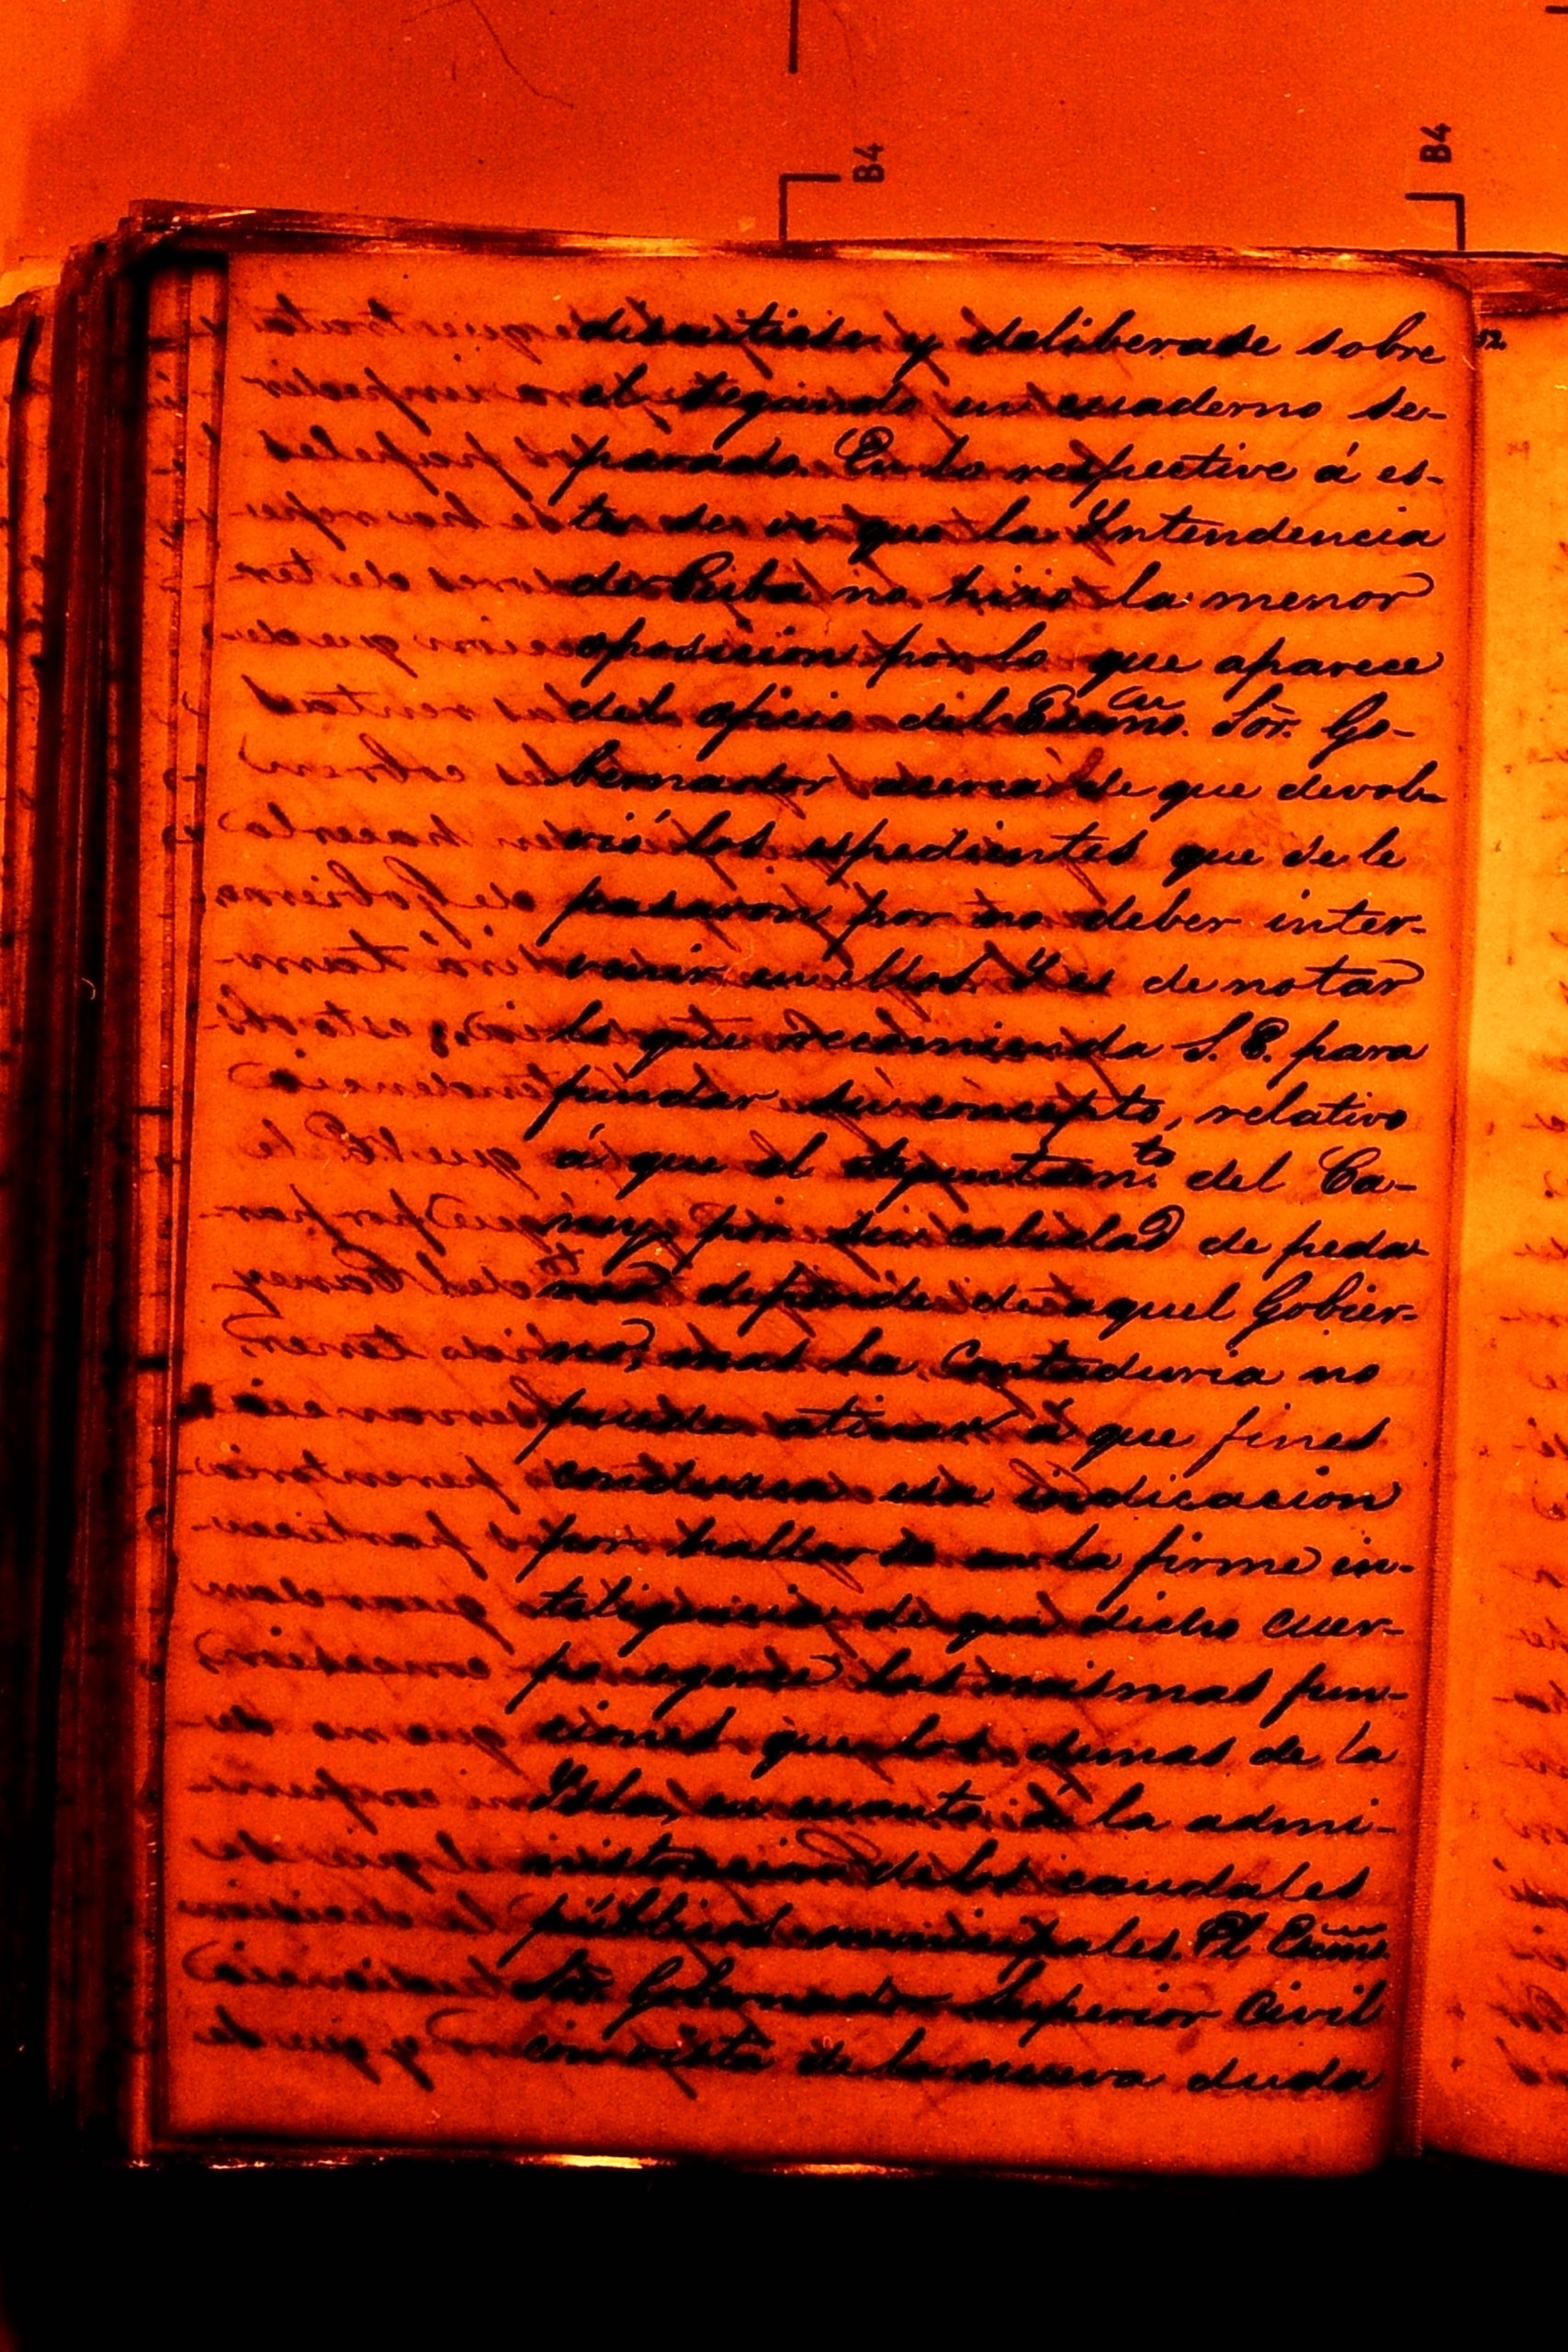 B4
B4
52
discutiese y deliberase sobre
el segundo en cuaderno se-
parado. En lo respective á es-
te se ve que la Yntendencia
de Cuba no hizo la menor
oposicion por lo que aparece
del oficio del Excmo. Sor. Go-
bernador acerca de que devol-
vió los espedientes que se le
pasaron por no deber inter-
venir en ellos. Y es de notar
lo que recomienda S. E. para
fundar su concepto, relativo
á que el Ayuntamto. del Ca-
ney por su calidad de peda-
neo depende de aquel Gobier-
no, mas la Contaduria no
puede atinar á que fines
conduzca esa indicacion
por hallarse en la firme in-
teligencia de que dicho cuer-
po egerce las mismas fun-
ciones que los demas de la
Ysla, en cuanto á la admi-
nistracion de los caudales
públicos municipales. El Excmo.
Sor. Gobernador Superior Civil
con vista de la nueva duda